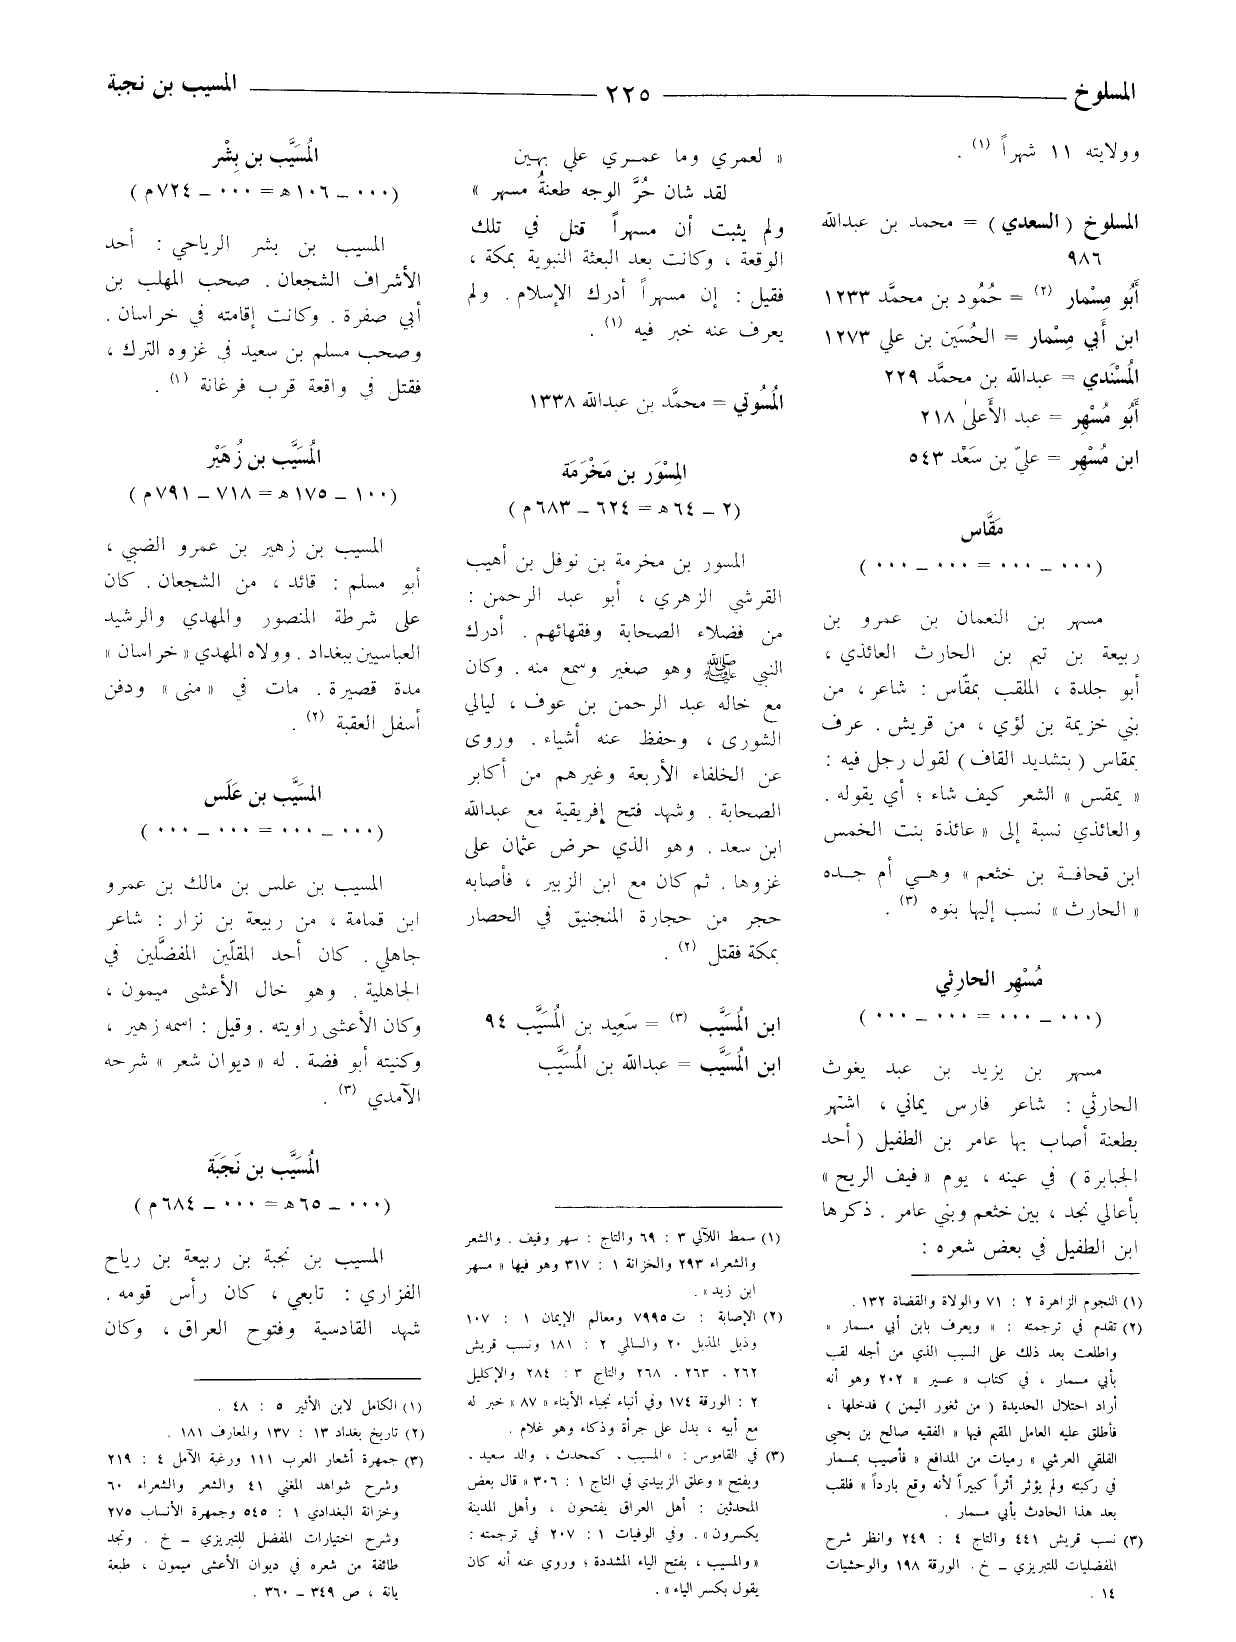 المسلوخ ٢٢٥ المسيب بن نجبة
وولايته ١١ شهراً (١) .
المسلوخ ( السعدي ) = محمد بن عبدالله
٩٨٦
أَبُو مِسْمار (٢) = حُمُود بن محمَّد ١٢٣٣
ابن أَبي مِسْمار = الحُسَين بن علي ١٢٧٣
المُسْنَدي = عبدالله بن محمَّد ٢٢٩
أَبُو مُسْهِر = عبد الأَعلىٰ ٢١٨
ابن مُسْهِر = عليّ بن سَعْد ٥٤٣
مَقَّاس
(٠٠٠ – ٠٠٠ = ٠٠٠ – ٠٠٠ )
مسهر بن النعمان بن عمرو بن
ربيعة بن تيم بن الحارث العائذي ،
أبو جلدة ، الملقب بمقّاس : شاعر ، من
بني خزيمة بن لؤي ، من قريش . عرف
بمقاس ( بتشديد القاف ) لقول رجل فيه :
« يمقس » الشعر كيف شاء ؛ أي يقوله .
والعائذي نسبة إلى « عائذة بنت الخمس
ابن قحافة بن خثعم » وهي أم جده
« الحارث » نسب إليها بنوه (٣) .
مُسْهِر الحارِثي
(٠٠٠ – ٠٠٠ = ٠٠٠ – ٠٠٠ )
مسهر بن يزيد بن عبد يغوث
الحارثي : شاعر فارس يماني ، اشتهر
بطعنة أصاب بها عامر بن الطفيل ( أحد
الجبابرة ) في عينه ، يوم « فيف الريح »
بأعالي نجد ، بين خثعم وبني عامر . ذكرها
ابن الطفيل في بعض شعره :
(١) النجوم الزاهرة ٢ : ٧١ والولاة والقضاة ١٣٢ .
(٢) تقدم في ترجمته : « ويعرف بابن أبي مسمار »
واطلعت بعد ذلك على السبب الذي من أجله لقب
بأبي مسمار ، في كتاب « عسير » ٢٠٢ وهو أنه
أراد احتلال الحديدة ( من ثغور اليمن ) فدخلها ،
فأطلق عليه العامل المقيم فيها « الفقيه صالح بن يحيى
الفلقي العرشي » رميات من المدافع « فأصيب بمسمار
في ركبته ولم يؤثر أثراً كبيراً لأنه وقع بارداً » فلقب
بعد هذا الحادث بأبي مسمار .
(٣) نسب قريش ٤٤١ والتاج ٤ : ٢٤٩ وانظر شرح
المفضليات للتبريزي – خ . الورقة ١٩٨ والوحشيات
١٤ .
« لعمري وما عمري علي بهين
لقد شان حُرَّ الوجه طعنةُ مسهر »
ولم يثبت أن مسهراً قتل في تلك
الوقعة ، وكانت بعد البعثة النبوية بمكة ،
فقيل : إن مسهراً أدرك الإسلام . ولم
يعرف عنه خبر فيه (١) .
المُسُوتي = محمَّد بن عبدالله ١٣٣٨
المِسْوَر بن مَخْرَمَة
(٢ – ٦٤ هـ = ٦٢٤ – ٦٨٣ م )
المسور بن مخرمة بن نوفل بن أهيب
القرشي الزهري ، أبو عبد الرحمن :
من فضلاء الصحابة وفقهائهم . أدرك
النبي ﷺ وهو صغير وسمع منه . وكان
مع خاله عبد الرحمن بن عوف ، ليالي
الشورى ، وحفظ عنه أشياء . وروى
عن الخلفاء الأربعة وغيرهم من أكابر
الصحابة . وشهد فتح إفريقية مع عبدالله
ابن سعد . وهو الذي حرض عثمان على
غزوها . ثم كان مع ابن الزبير ، فأصابه
حجر من حجارة المنجنيق في الحصار
بمكة فقتل (٢) .
ابن المُسَيَّب (٣) = سَعِيد بن المُسَيَّب ٩٤
ابن المُسَيَّب = عبدالله بن المُسَيَّب
(١) سمط اللآلي ٣ : ٦٩ والتاج : سهر وفيف . والشعر
والشعراء ٢٩٣ والخزانة ١ : ٣١٧ وهو فيها « مسهر
ابن زيد » .
(٢) الإصابة : ت ٧٩٩٥ ومعالم الإيمان ١ : ١٠٧
وذيل المذيل ٢٠ والسالي ٢ : ١٨١ ونسب قريش
٢٦٢ ، ٢٦٣ ، ٢٦٨ والتاج ٣ : ٢٨٤ والإكليل
٢ : الورقة ١٧٤ وفي أنباء نجباء الأبناء « ٨٧ » خبر له
مع أبيه ، يدل على جرأة وذكاء وهو غلام .
(٣) في القاموس : « المسيب . كمحدث ، والد سعيد .
ويفتح » وعلق الزبيدي في التاج ١ : ٣٠٦ » قال بعض
المحدثين : أهل العراق يفتحون ، وأهل المدينة
يكسرون » . وفي الوفيات ١ : ٢٠٧ في ترجمته :
« والمسيب ، بفتح الياء المشددة ؛ وروي عنه أنه كان
يقول بكسر الياء » .
المُسَيَّب بن بِشْر
(٠٠٠ – ١٠٦ هـ = ٠٠٠ – ٧٢٤ م )
المسيب بن بشر الرياحي : أحد
الأشراف الشجعان . صحب المهلب بن
أبي صفرة . وكانت إقامته في خراسان .
وصحب مسلم بن سعيد في غزوه الترك ،
فقتل في واقعة قرب فرغانة (١) .
المُسَيَّب بن زُهَيْر
(١٠٠ – ١٧٥ هـ = ٧١٨ – ٧٩١ م )
المسيب بن زهير بن عمرو الضبي ،
أبو مسلم : قائد ، من الشجعان . كان
على شرطة المنصور والمهدي والرشيد
العباسيين ببغداد . وولاه المهدي « خراسان »
مدة قصيرة . مات في « منى » ودفن
أسفل العقبة (٢) .
المسَيَّب بن عَلَس
(٠٠٠ – ٠٠٠ = ٠٠٠ – ٠٠٠ )
المسيب بن علس بن مالك بن عمرو
ابن قمامة ، من ربيعة بن نزار : شاعر
جاهلي . كان أحد المقلّين المفضَّلين في
الجاهلية . وهو خال الأعشى ميمون ،
وكان الأعشى راويته . وقيل : اسمه زهير ،
وكنيته أبو فضة . له « ديوان شعر » شرحه
الآمدي (٣) .
المُسَيَّب بن نَجَبَة
(٠٠٠ – ٦٥ هـ = ٠٠٠ – ٦٨٤ م )
المسيب بن نجبة بن ربيعة بن رياح
الفزاري : تابعي ، كان رأس قومه .
شهد القادسية وفتوح العراق ، وكان
(١) الكامل لابن الأثير ٥ : ٤٨ .
(٢) تاريخ بغداد ١٣ : ١٣٧ والمعارف ١٨١ .
(٣) جمهرة أشعار العرب ١١١ ورغبة الآمل ٤ : ٢١٩
وشرح شواهد المغني ٤١ والشعر والشعراء ٦٠
وخزانة البغدادي ١ : ٥٤٥ وجمهرة الأنساب ٢٧٥
وشرح اختيارات المفضل للتبريزي – خ . وتجد
طائفة من شعره في ديوان الأعشى ميمون ، طبعة
يانة ، ص ٣٤٩ – ٣٦٠ .